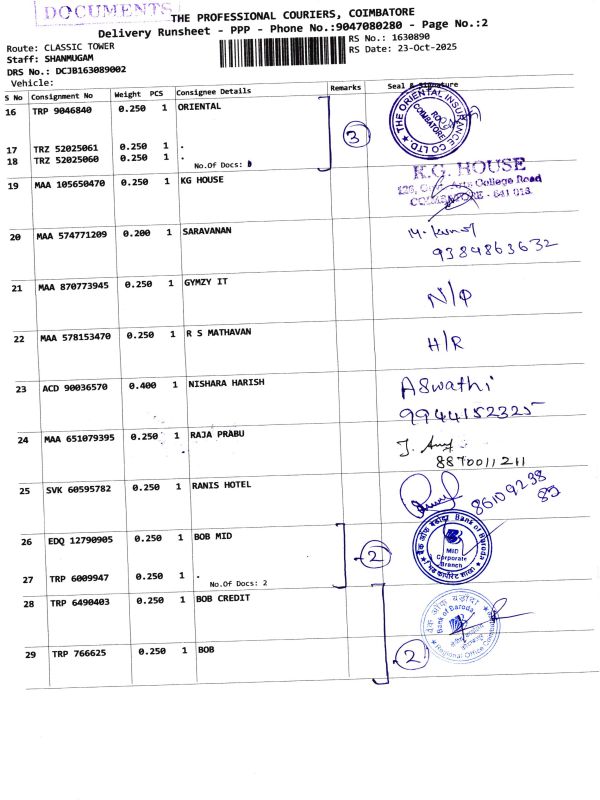 DOCUMENTS
THE PROFESSIONAL COURIERS, COIMBATORE
Delivery Runsheet - PPP - Phone No.:9047080280 - Page No.:2
Route: CLASSIC TOWER
RS No.: 1630890
Staff: SHANMUGAM
RS Date: 23-Oct-2025
DRS No.: DCJB163089002
Vehicle:
S No Consignment No Weight PCS Consignee Details Remarks Seal & Signature
16 TRP 9046840 0.250 1 ORIENTAL
THE ORIENTAL INSURANCE CO LTD.
COIMBATORE
3
17 TRZ 52025061 0.250 1 .
18 TRZ 52025060 0.250 1 .
No.Of Docs:
K.G. HOUSE
Arts College Road
COIMBATORE - 641 018.
19 MAA 105650470 0.250 1 KG HOUSE
20 MAA 574771209 0.200 1 SARAVANAN
9384863632
21 MAA 870773945 0.250 1 GYMZY IT
N/P
22 MAA 578153470 0.250 1 R S MATHAVAN
H/R
23 ACD 90036570 0.400 1 NISHARA HARISH
Aswathi
9944152325
24 MAA 651079395 0.250 1 RAJA PRABU
8870011211
25 SVK 60595782 0.250 1 RANIS HOTEL
86109238
26 EDQ 12790905 0.250 1 BOB MID
2
बैंक ऑफ़ बड़ौदा Bank of Baroda
MID
Corporate
Branch
27 TRP 6009947 0.250 1 .
No.Of Docs: 2
28 TRP 6490403 0.250 1 BOB CREDIT
बैंक ऑफ़ बड़ौदा
Bank of Baroda
Regional Office
29 TRP 766625 0.250 1 BOB
2